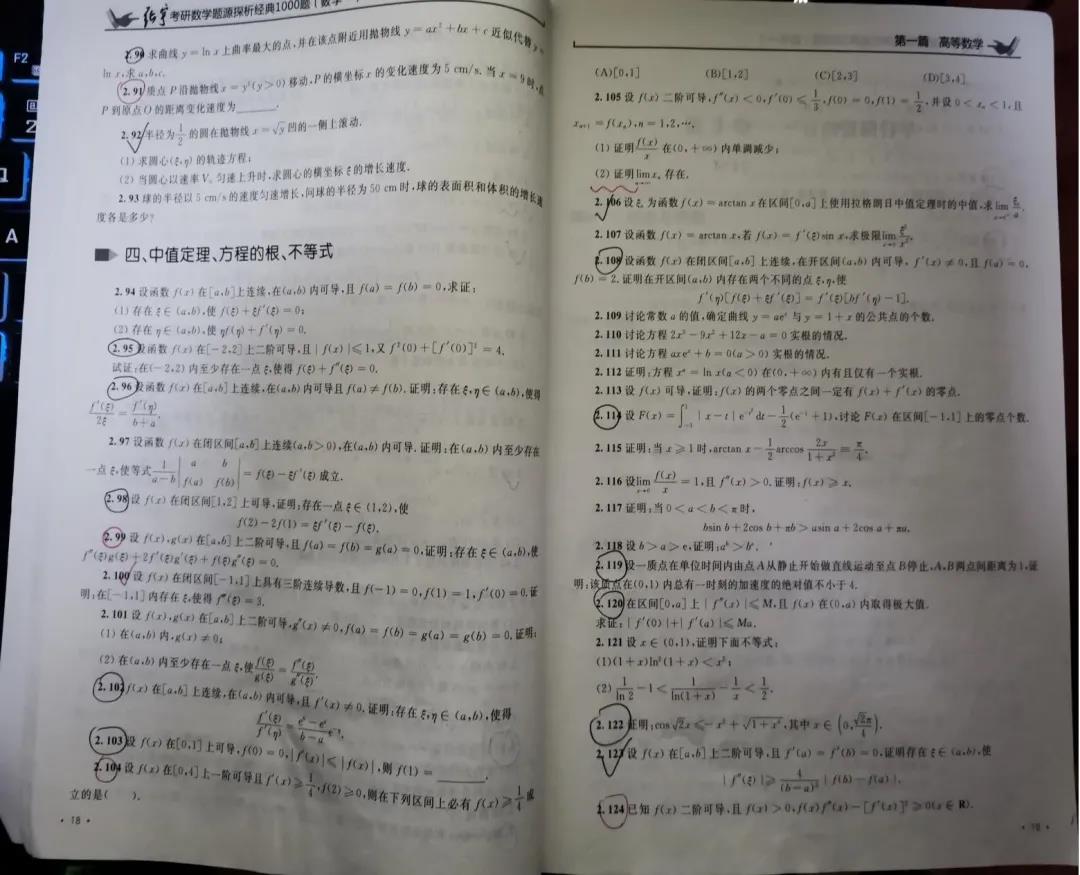 F2
2
A
张宇考研数学题源探析经典1000题(数学一)
2.90 求曲线 y = ln x 上曲率最大的点,并在该点附近用抛物线 y = ax² + bx + c 近似代替 y =
ln x,求 a,b,c.
2.91 质点 P 沿抛物线 x = y²(y>0) 移动,P 的横坐标 x 的变化速度为 5 cm/s. 当 x = 9 时,点
P 到原点 O 的距离变化速度为______.
2.92 半径为 1/2 的圆在抛物线 x = √y 凹的一侧上滚动.
(1) 求圆心(ξ,η) 的轨迹方程;
(2) 当圆心以速率 V。匀速上升时,求圆心的横坐标 ξ 的增长速度.
2.93 球的半径以 5 cm/s 的速度匀速增长,问球的半径为 50 cm 时,球的表面积和体积的增长速
度各是多少?
四、中值定理、方程的根、不等式
2.94 设函数 f(x) 在[a,b]上连续,在(a,b) 内可导,且 f(a) = f(b) = 0,求证:
(1) 存在 ξ ∈ (a,b),使 f(ξ) + ξf′(ξ) = 0;
(2) 存在 η ∈ (a,b),使 ηf(η) + f′(η) = 0.
2.95 设函数 f(x) 在[−2,2] 上二阶可导,且 | f(x) | ≤ 1,又 f²(0) + [f′(0)]² = 4.
试证:在(−2,2) 内至少存在一点 ξ,使得 f(ξ) + f″(ξ) = 0.
2.96 设函数 f(x) 在[a,b] 上连续,在(a,b) 内可导且 f(a) ≠ f(b). 证明:存在 ξ,η ∈ (a,b),使得
f′(ξ)/2ξ = f′(η)/(b+a).
2.97 设函数 f(x) 在闭区间[a,b] 上连续(a,b>0),在(a,b) 内可导. 证明:在(a,b) 内至少存在
一点 ξ,使等式 1/(a−b) | a b ; f(a) f(b) | = f(ξ) − ξf′(ξ) 成立.
2.98 设 f(x) 在闭区间[1,2] 上可导,证明:存在一点 ξ ∈ (1,2),使
f(2) − 2f(1) = ξf′(ξ) − f(ξ).
2.99 设 f(x),g(x) 在[a,b] 上二阶可导,且 f(a) = f(b) = g(a) = 0,证明:存在 ξ ∈ (a,b),使
f″(ξ)g(ξ) + 2f′(ξ)g′(ξ) + f(ξ)g″(ξ) = 0.
2.100 设 f(x) 在闭区间[−1,1] 上具有三阶连续导数,且 f(−1) = 0,f(1) = 1,f′(0) = 0. 证
明:在[−1,1] 内存在 ξ,使得 f‴(ξ) = 3.
2.101 设 f(x),g(x) 在[a,b] 上二阶可导,g″(x) ≠ 0,f(a) = f(b) = g(a) = g(b) = 0. 证明:
(1) 在(a,b) 内,g(x) ≠ 0;
(2) 在(a,b) 内至少存在一点 ξ,使 f(ξ)/g(ξ) = f″(ξ)/g″(ξ).
2.102 f(x) 在[a,b] 上连续,在(a,b) 内可导,且 f′(x) ≠ 0. 证明:存在 ξ,η ∈ (a,b),使得
f′(ξ)/f′(η) = (eᵇ − eᵃ)/(b − a) e⁻η.
2.103 设 f(x) 在[0,1] 上可导,f(0) = 0,| f′(x) | ≤ | f(x) |,则 f(1) = ______.
2.104 设 f(x) 在[0,4] 上一阶可导且 f′(x) ≥ 1/4,f(2) ≥ 0,则在下列区间上必有 f(x) ≥ 1/4 成
立的是( ).
• 18 •
第一篇 高等数学
(A)[0,1] (B)[1,2] (C)[2,3] (D)[3,4]
2.105 设 f(x) 二阶可导,f″(x) < 0,f′(0) ≤ 1/3,f(0) = 0,f(1) = 1/2,并设 0 < x₁ < 1,且
xₙ₊₁ = f(xₙ),n = 1,2,⋯.
(1) 证明 f(x)/x 在(0,+∞) 内单调减少;
(2) 证明 lim xₙ 存在.
2.106 设 ξ 为函数 f(x) = arctan x 在区间[0,a] 上使用拉格朗日中值定理时的中值,求 lim ξ/a.
2.107 设函数 f(x) = arctan x,若 f(x) = f′(ξ)sin x,求极限 lim ξ²/x².
2.108 设函数 f(x) 在闭区间[a,b] 上连续,在开区间(a,b) 内可导, f′(x) ≠ 0,且 f(a) = 0,
f(b) = 2. 证明在开区间(a,b) 内存在两个不同的点 ξ,η,使
f′(η)[f(ξ) + ξf′(ξ)] = f′(ξ)[bf′(η) − 1].
2.109 讨论常数 a 的值,确定曲线 y = aeˣ 与 y = 1 + x 的公共点的个数.
2.110 讨论方程 2x³ − 9x² + 12x − a = 0 实根的情况.
2.111 讨论方程 axeˣ + b = 0(a > 0) 实根的情况.
2.112 证明:方程 xᵃ = ln x(a < 0) 在(0,+∞) 内有且仅有一个实根.
2.113 设 f(x) 可导,证明:f(x) 的两个零点之间一定有 f(x) + f′(x) 的零点.
2.114 设 F(x) = ∫₋₁¹ | x − t | e^(−t²) dt − 1/2 (e⁻¹ + 1),讨论 F(x) 在区间[−1,1] 上的零点个数.
2.115 证明:当 x ≥ 1 时,arctan x − 1/2 arccos 2x/(1 + x²) = π/4.
2.116 设 lim f(x)/x = 1,且 f″(x) > 0. 证明:f(x) ≥ x.
2.117 证明:当 0 < a < b < π 时,
bsin b + 2cos b + πb > asin a + 2cos a + πa.
2.118 设 b > a > e,证明:aᵇ > bᵃ.
2.119 设一质点在单位时间内由点 A 从静止开始做直线运动至点 B 停止,A、B 两点间距离为 1,证
明:该质点在(0,1) 内总有一时刻的加速度的绝对值不小于 4.
2.120 在区间[0,a] 上 | f″(x) | ≤ M,且 f(x) 在(0,a) 内取得极大值.
求证:| f′(0) | + | f′(a) | ≤ Ma.
2.121 设 x ∈ (0,1),证明下面不等式:
(1) (1 + x)ln²(1 + x) < x²;
(2) 1/ln 2 − 1 < 1/ln(1 + x) − 1/x < 1/2.
2.122 证明:cos √2x ≤ − x² + √(1 + x⁴),其中 x ∈ (0, √2π/4).
2.123 设 f(x) 在[a,b] 上二阶可导,且 f′(a) = f′(b) = 0,证明存在 ξ ∈ (a,b),使
| f″(ξ) | ≥ 4/(b − a)² | f(b) − f(a) |.
2.124 已知 f(x) 二阶可导,且 f(x) > 0,f(x)f″(x) − [f′(x)]² ≥ 0(x ∈ R).
• 19 •